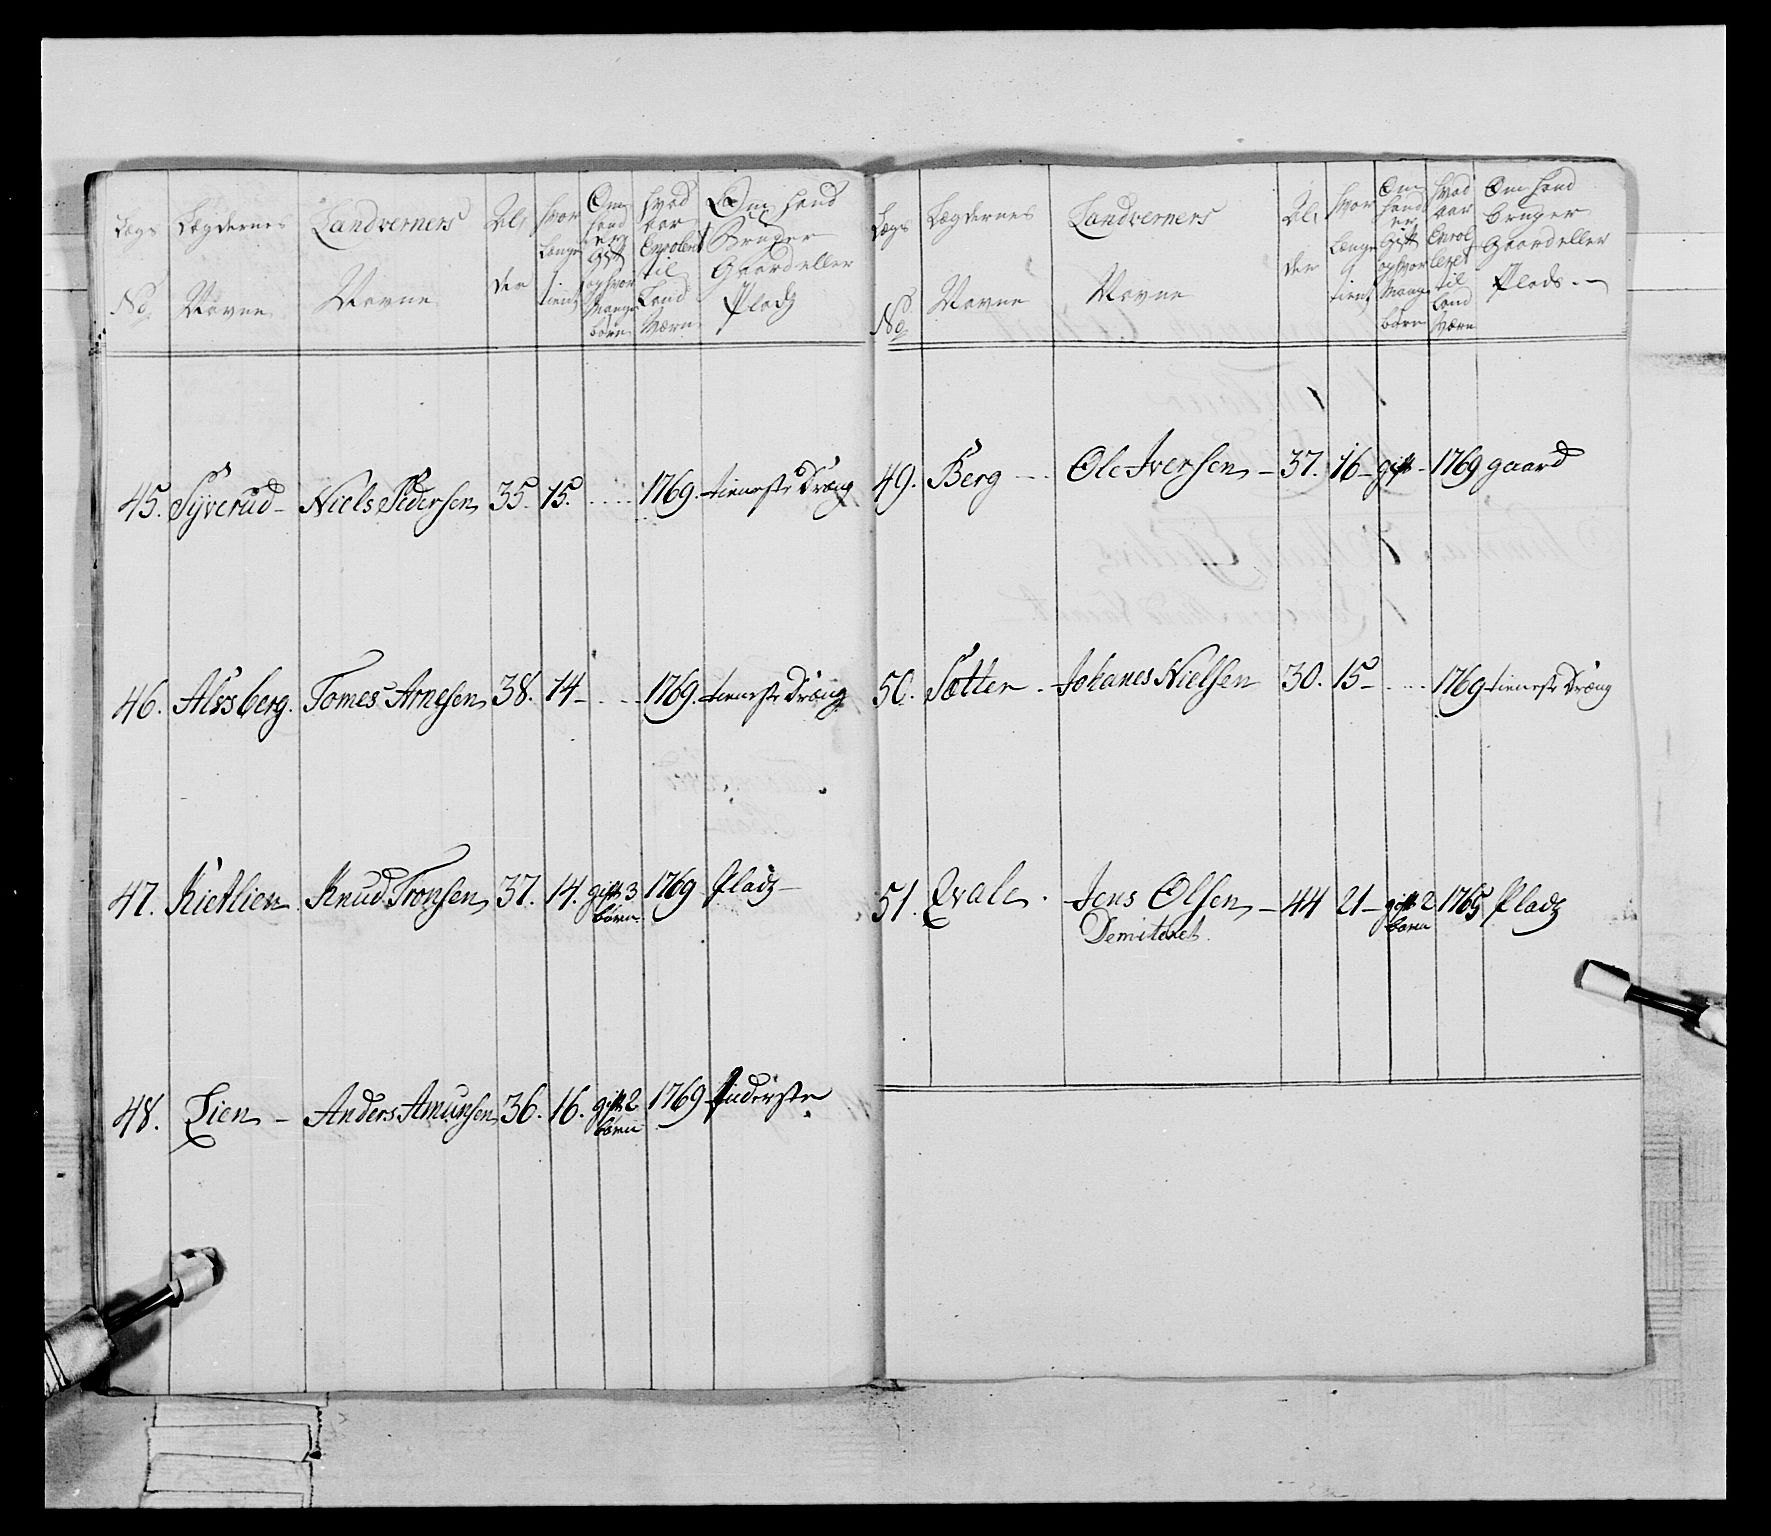 Lægs No Lægdernes Navne Landverners Navne Al, der hvor Længe tient Om hand er Gift og hvor Mange børn hvad aar Enrolert til Land Værn Om hand Bruger Gaard eller Pladz
45. Syverud – Niels Pedersen 35. 15. 1769. tieneste Dræng
46. Alssberg. Tomes Arnesen 38. 14 – 1769. tieneste Dræng
47. Kietlien Knud Tronsen 37. 14. gift 3 børn 1769 Pladz –
48. Lien – Anders Amunsen 36. 16. gift 2 børn 1769 Inderste
Lægs No Lægdernes Navne Landverners Navne Al, der hvor Længe tient Om hand er Gift og hvor Mange børn hvad aar Enrolleret til Land Værn Om hand bruger Gaard eller Plads. –
49. Berg – Ole Iversen – 37. 16 – gift – 1769 gaard
50. Sætter. Johanes Nielsen 30. 15 – 1769 tieneste Dræng
51. Qvale. Jens Olsen – 44 21 – gift 2 børn 1765 Pladz
Demiteret.